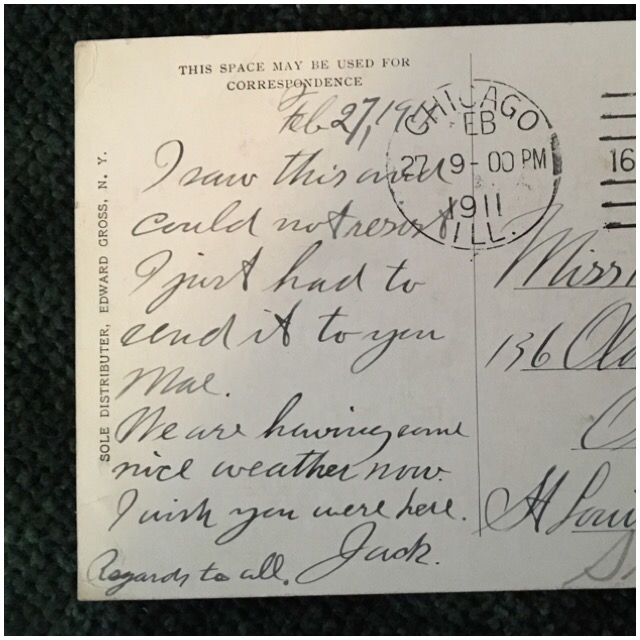 THIS SPACE MAY BE USED FOR
CORRESPONDENCE
SOLE DISTRIBUTER, EDWARD GROSS, N. Y.
Feb 27, 191
I saw this and
could not resist
I just had to
send it to you
Mae.
We are having some
nice weather now.
I wish you were here.
Jack.
Regards to all.
CHICAGO
FEB
27 9-00 PM
1911
ILL.
16
Miss
136
St Loui